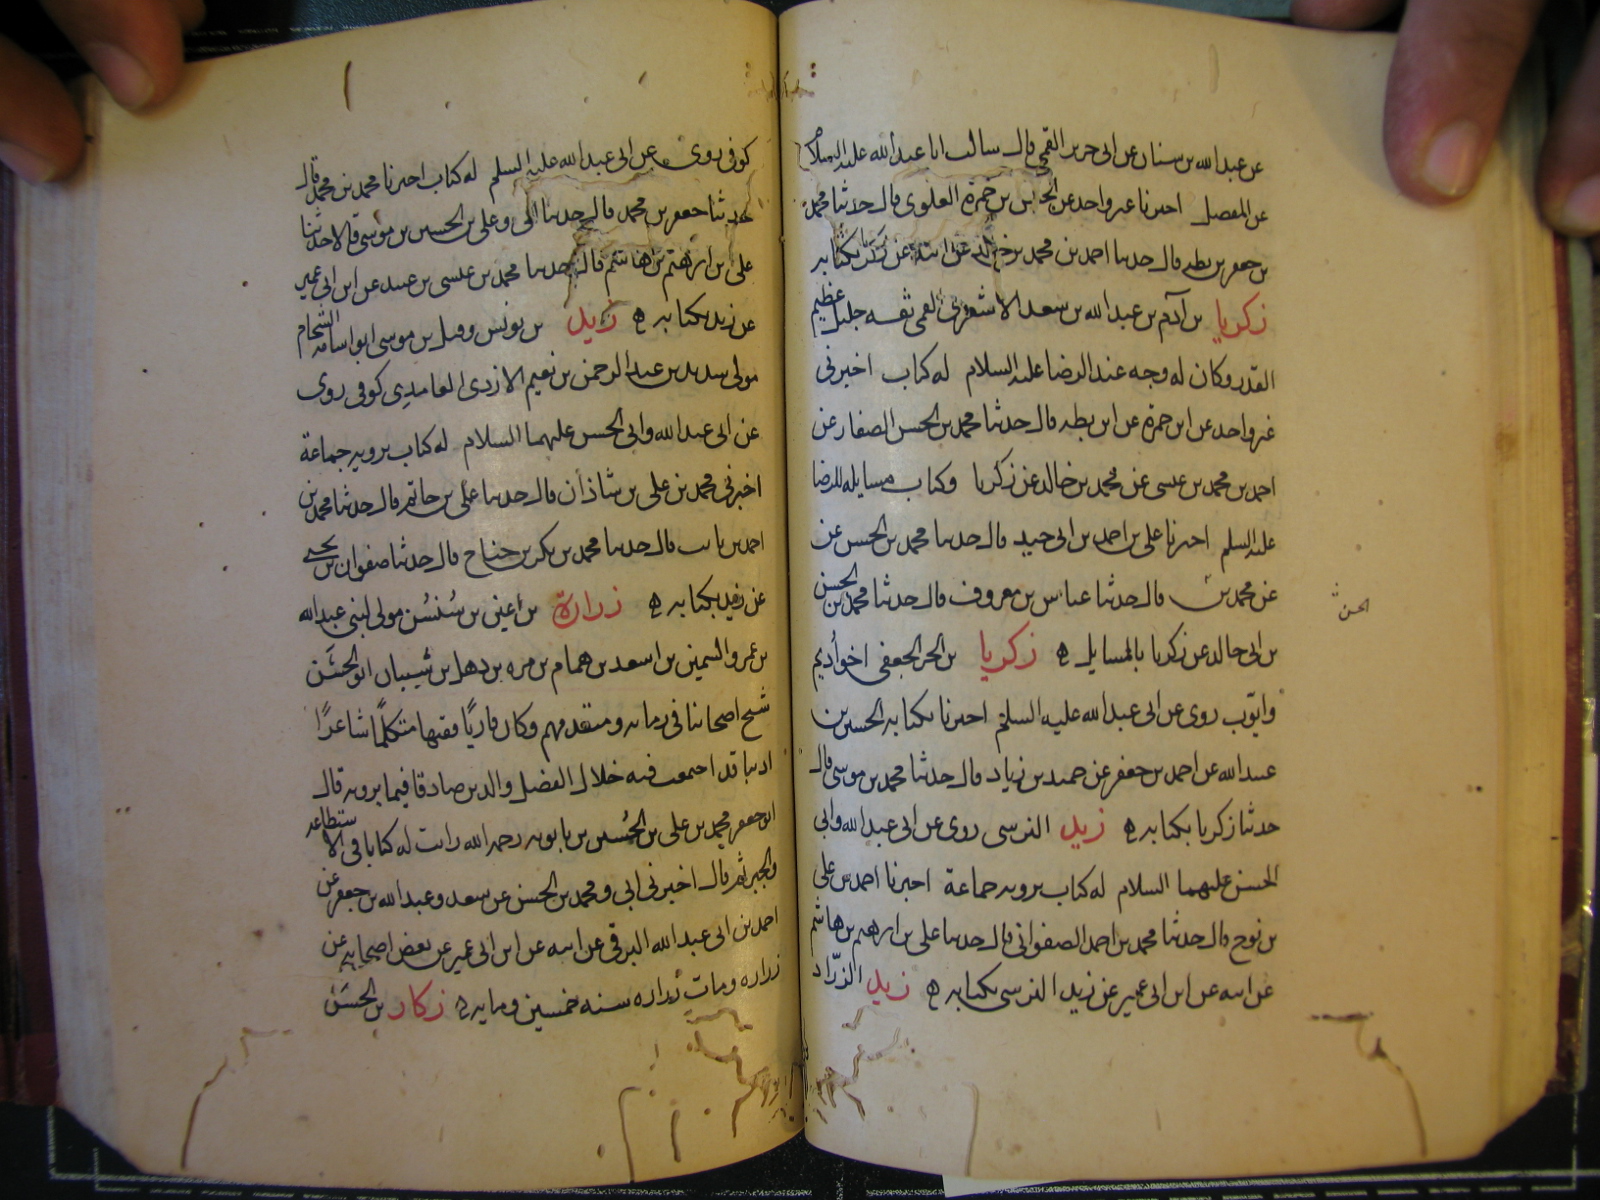 عن عبدالله بن سنان عن ابى جرير القمى قال سالت ابا عبدالله عليه السلام
عن المفضل اخبرنا غير واحد عن الحسن بن حمزة العلوى قال حدثنا محمد
بن جعفر بن بطه قال حدثنا احمد بن محمد بن خالد عن ابيه عن زكريا بكتابه
زكريا بن آدم بن عبدالله بن سعد الاشعرى القمى ثقه جليل عظيم
القدر وكان له وجه عند الرضا عليه السلام له كتاب اخبرنى
غير واحد عن ابن حمزة عن ابن بطه قال حدثنا محمد بن الحسن الصفار عن
احمد بن محمد بن عيسى عن محمد بن خالد عن زكريا وكتاب مسايله للرضا
عليه السلم اخبرنا على بن احمد بن ابى جيد قال حدثنا محمد بن الحسن عن
عن محمد بن قال حدثنا عباس بن معروف قال حدثنا محمد بن الحسن
الحسن
بن ابى خالد عن زكريا بالمسايل ه زكريا بن الحر الجعفى اخو أديم
وايوب روى عن ابى عبدالله عليه السلم اخبرنا بكتابه الحسين بن
عبيدالله عن احمد بن جعفر عن حميد بن زياد قال حدثنا محمد بن موسى قال
حدثنا زكريا بكتابه ه زيد النرسى روى عن ابى عبدالله وابى
الحسن عليهما السلام له كتاب يرويه جماعة اخبرنا احمد بن على
بن نوح قال حدثنا محمد بن احمد الصفوانى قال حدثنا على بن ابرهيم بن هاشم
عن ابيه عن ابن ابى عمير عن زيد النرسى بكتابه ه زيد الزرّاد
كوفى روى عن ابى عبدالله عليه السلم له كتاب اخبرنا محمد بن محمد قال
حدثنا جعفر بن محمد قال حدثنا ابى وعلى بن الحسين بن موسى قالا حدثنا
على بن ابرهيم بن هاشم قال حدثنا محمد بن عيسى بن عبيد عن ابن ابى عمير
عن زيد بكتابه ه زيد بن يونس وقيل بن موسى ابو اسامه الشحام
مولى شديد بن عبد الرحمن بن نعيم الازدى الغامدى كوفى روى
عن ابى عبدالله وابى الحسن عليهما السلام له كتاب يرويه جماعة
اخبرنى محمد بن على بن شاذان قال حدثنا على بن حاتم قال حدثنا محمد بن
احمد بن ثابت قال حدثنا محمد بن بكر بن جناح قال حدثنا صفوان بن يحيى
عن زيد بكتابه ه زرارة بن أعين بن سُنسُن مولى لبنى عبدالله
بن عمرو السمين بن اسعد بن همام بن مره بن ذهل بن شيبان ابو الحسَن
شيخ اصحابنا فى زمانه ومتقدمهم وكان قاريًا فقيها متكلمًا شاعرًا
اديبا قد اجتمعت فيه خلال الفضل والدين صادقا فيما يرويه قال
ابو جعفر محمد بن على بن الحُسين بن بابويه رحمه الله رايت له كتابا فى الاستطاعه
والجبر ثم قال اخبرنى ابى ومحمد بن الحسن عن سعد وعبدالله بن جعفر عن
احمد بن ابى عبدالله البرقى عن ابيه عن ابن ابى عمير عن بعض اصحابه عن
زراره ومات زراره سنه خمسين ومايه ه زكار بن الحسَن